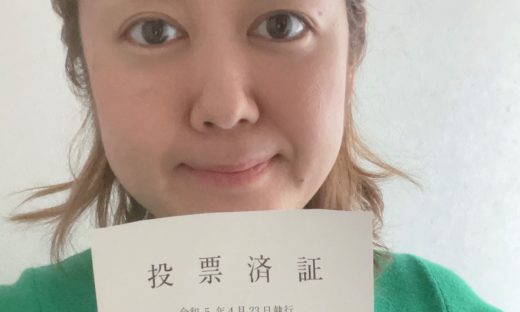 投票済証
令和5年4月23日執行